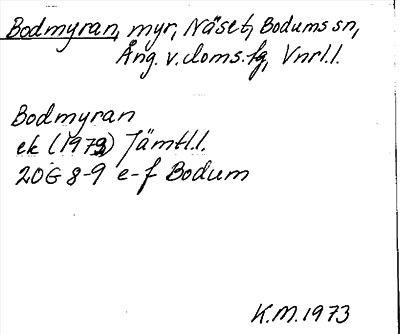 Bodmyran, myr, Näset, Bodums sn,
Ång. v. doms. fg, Vnrl.l.
Bodmyran
ek (1973) Jämtl.l.
20G 8-9 e-f Bodum
K.M. 1973